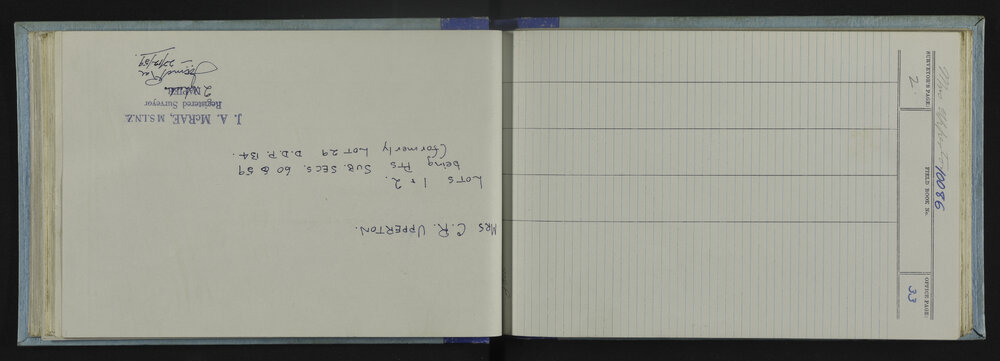 MRS C. R. UPPERTON.
LOTS 1 + 2.
being Pts SUB. SECS. 60 & 59
(formerly LOT 29 D.D.P. 134.
J. A. McRAE, M.S.I.N.Z.
Registered Surveyor
NAPIER.
22/12/59
Mrs Upperton
SURVEYOR'S PAGE:
2.
FIELD BOOK No.
10086
OFFICE PAGE:
33